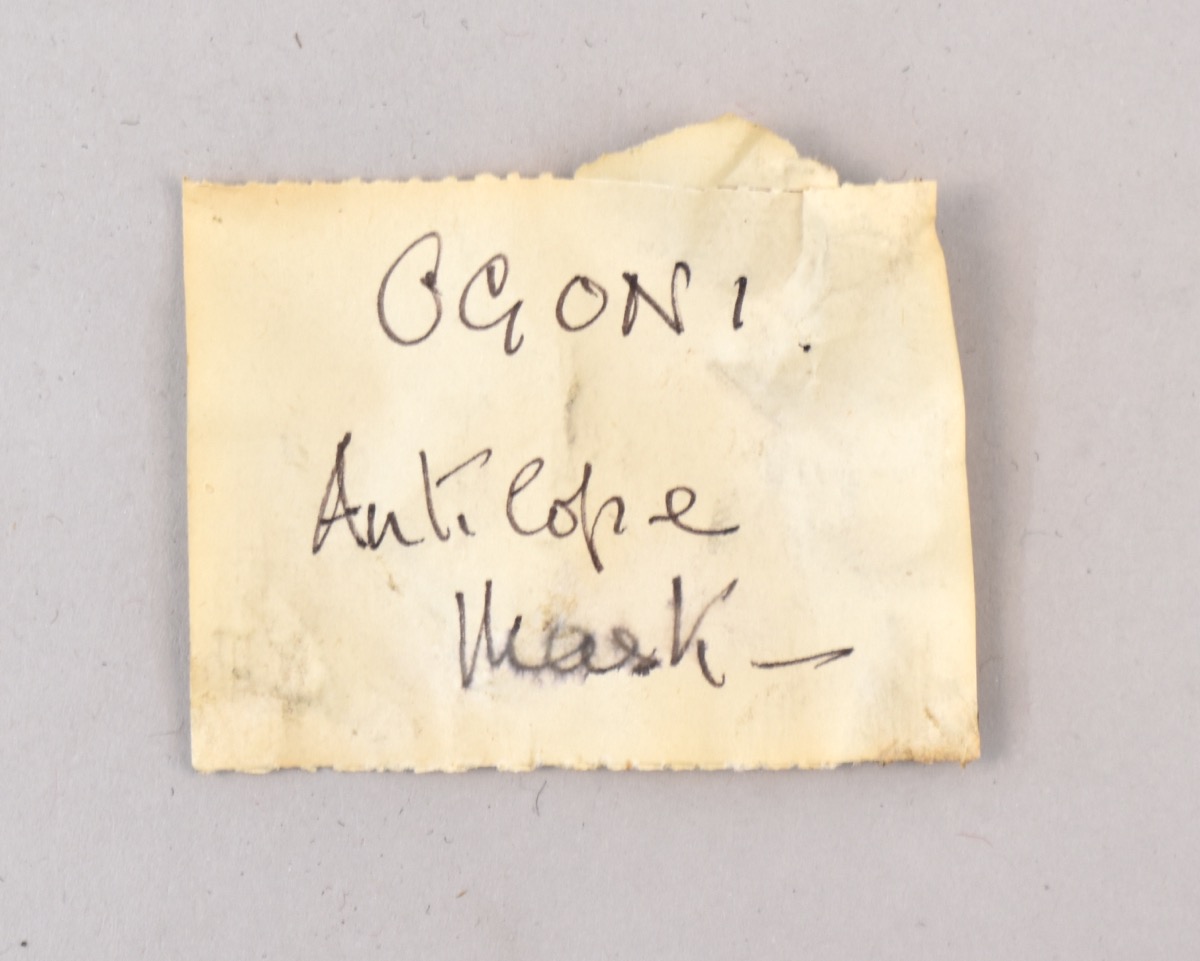 OGONI.
Antilope
Mask –